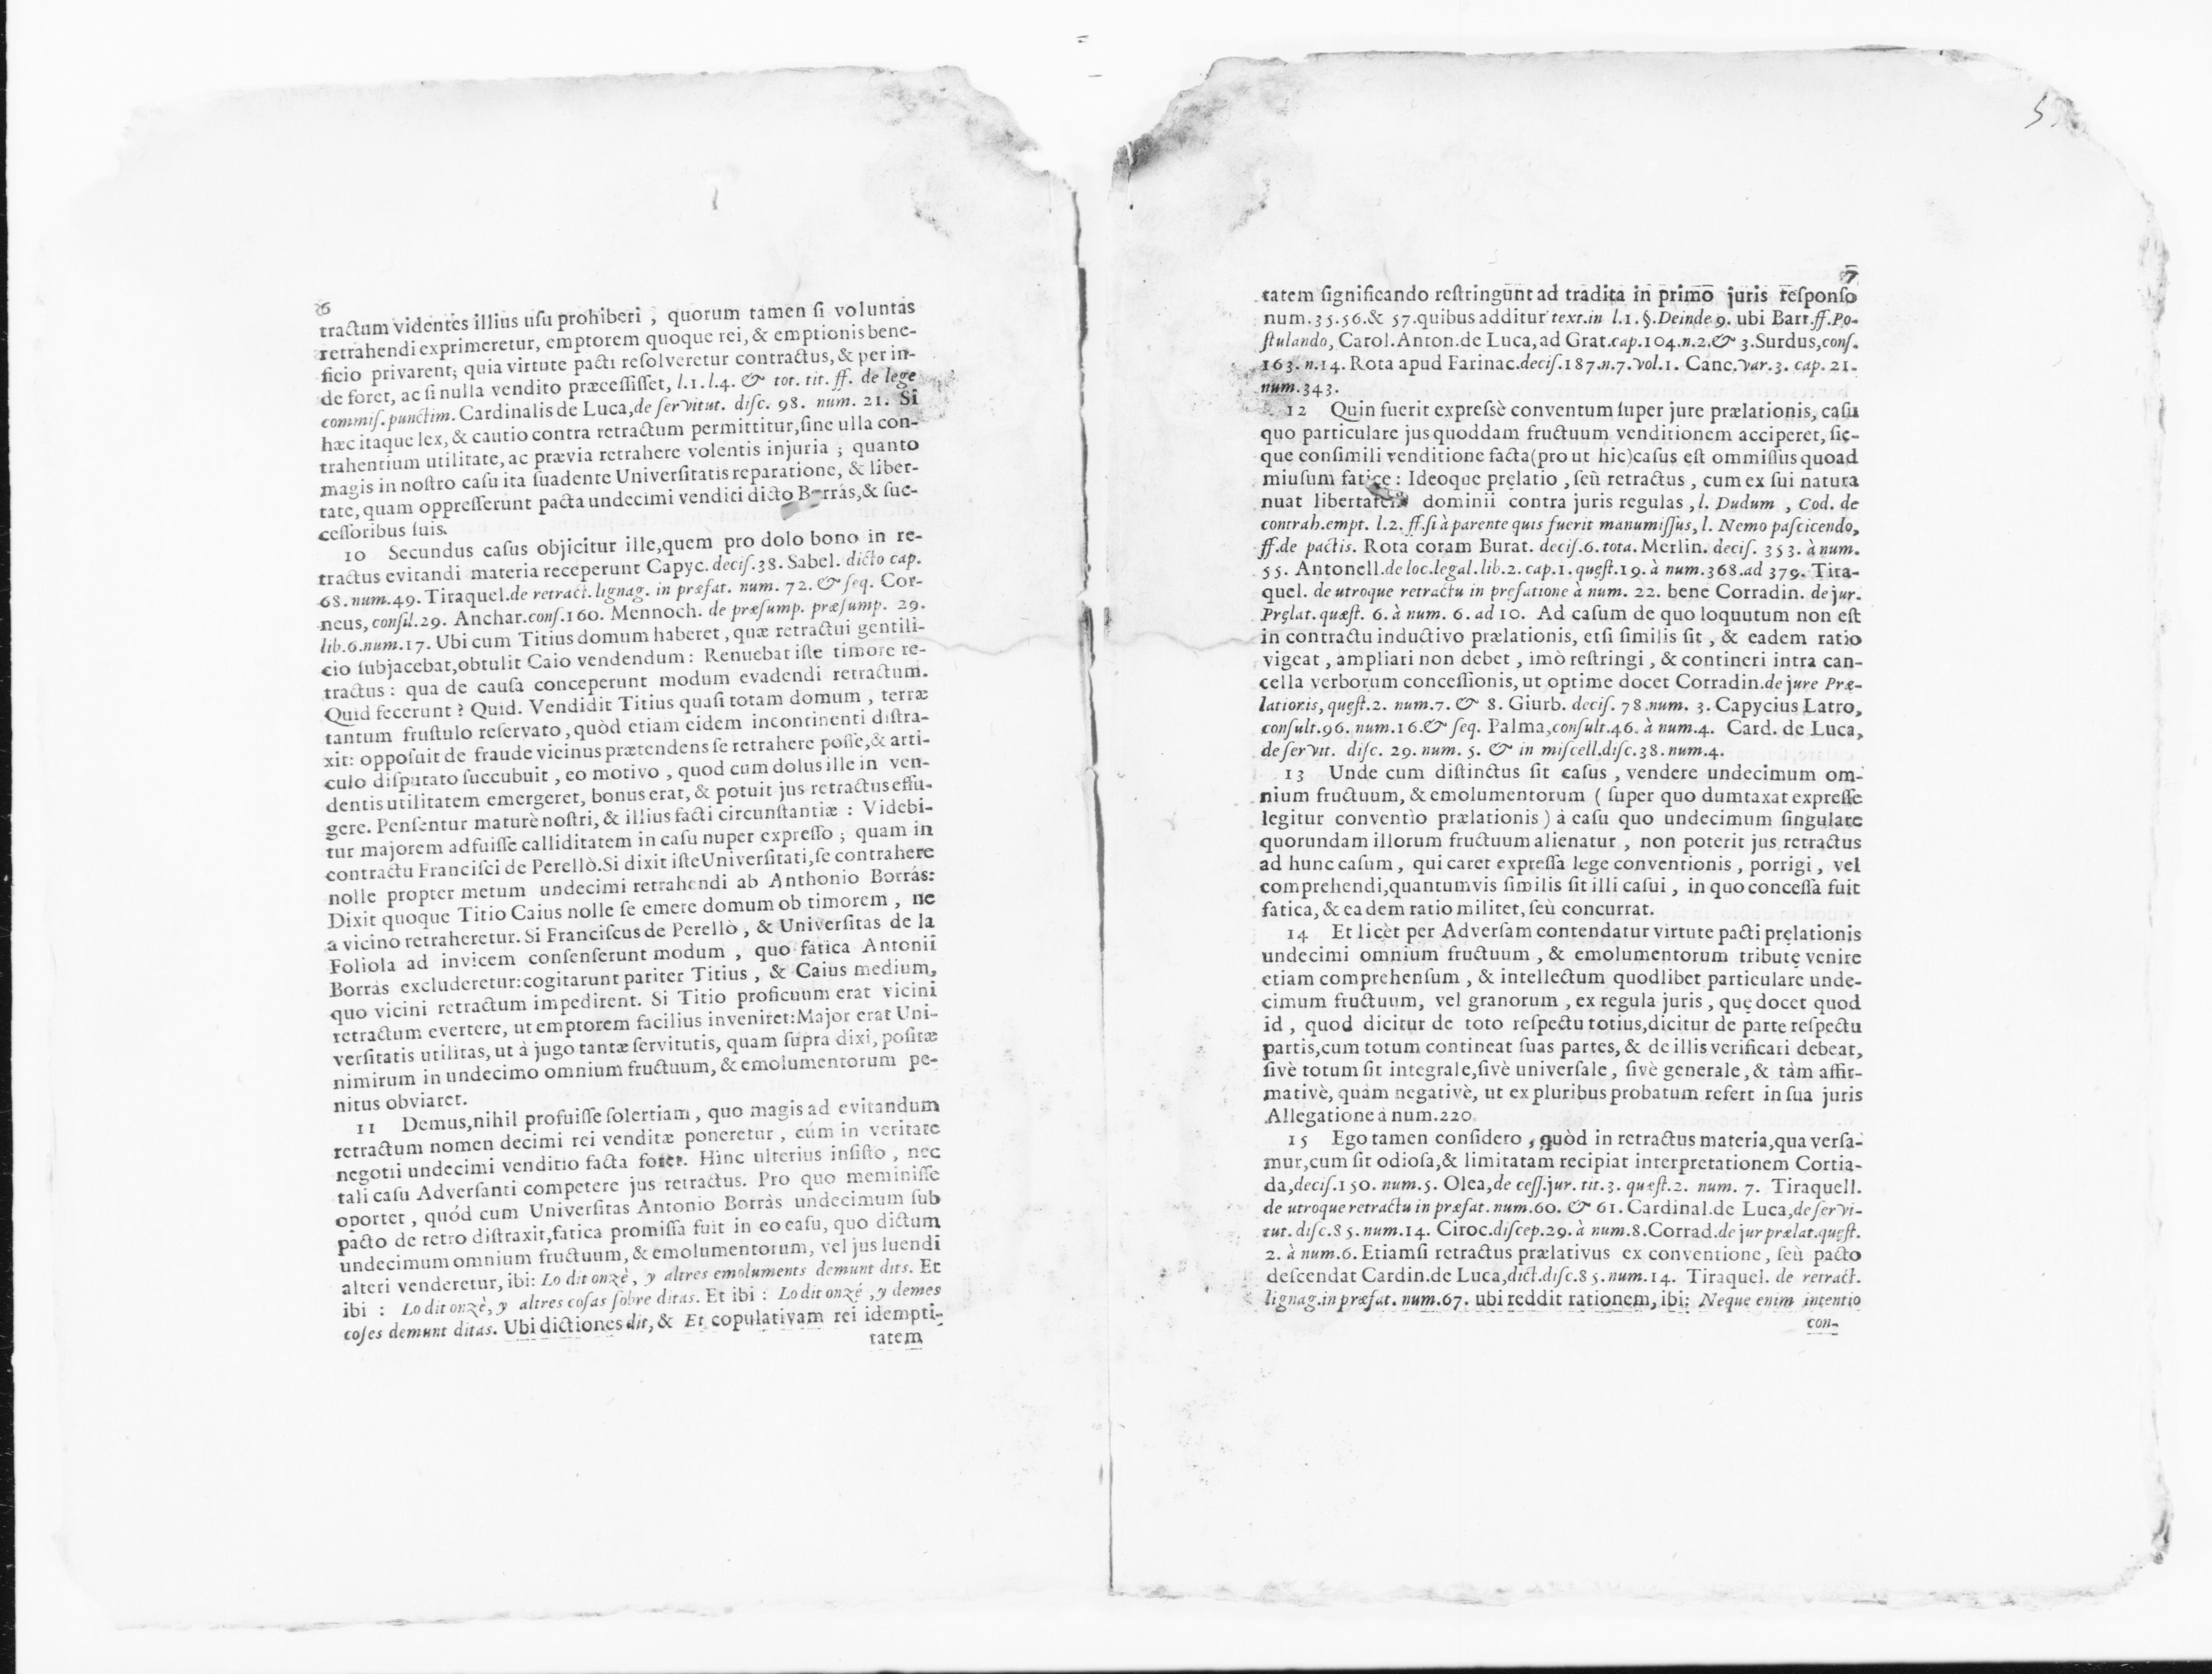 6
tractum videntes illius usu prohiberi , quorum tamen si voluntas
retrahendi exprimeretur, emptorem quoque rei, & emptionis bene-
ficio privarent; quia virtute pacti resolveretur contractus, & per in-
de foret, ac si nulla vendito præcessisset, l.1. l.4. & tot. tit. ff. de lege
commis. punctim. Cardinalis de Luca, de servitut. disc. 98. num. 21. Si
hæc itaque lex, & cautio contra retractum permittitur, sine ulla con-
trahentium utilitate, ac prævia retrahere volentis injuria ; quanto
magis in nostro casu ita suadente Universitatis reparatione, & liber-
tate, quam oppresserunt pacta undecimi venditi dicto Borrás, & suc-
cessoribus suis.
10 Secundus casus objicitur ille, quem pro dolo bono in re-
tractus evitandi materia receperunt Capyc. decis. 38. Sabel. dicto cap.
68. num. 49. Tiraquel. de retract. lignag. in præfat. num. 72. & seq. Cor-
neus, consil. 29. Anchar. cons. 160. Mennoch. de præsump. præsump. 29.
lib. 6. num. 17. Ubi cum Titius domum haberet , quæ retractui gentili-
cio subjacebat, obtulit Caio vendendum : Renuebat iste timore re-
tractus : qua de causa conceperunt modum evadendi retractum.
Quid fecerunt ? Quid. Vendidit Titius quasi totam domum , terræ
tantum frustulo reservato , quòd etiam eidem incontinenti distra-
xit: opposuit de fraude vicinus prætendens se retrahere posse, & arti-
culo disputato succubuit , eo motivo , quod cum dolus ille in ven-
dentis utilitatem emergeret, bonus erat, & potuit jus retractus effu-
gere. Pensentur maturè nostri, & illius facti circunstantiæ : Videbi-
tur majorem adfuisse calliditatem in casu nuper expresso ; quam in
contractu Francisci de Perellò. Si dixit iste Universitati, se contrahere
nolle propter metum undecimi retrahendi ab Anthonio Borrás:
Dixit quoque Titio Caius nolle se emere domum ob timorem , ne
a vicino retraheretur. Si Franciscus de Perellò , & Universitas de la
Foliola ad invicem consenserunt modum , quo fatica Antonii
Borràs excluderetur: cogitarunt pariter Titius , & Caius medium,
quo vicini retractum impedirent. Si Titio proficuum erat vicini
retractum evertere, ut emptorem facilius inveniret: Major erat Uni-
versitatis utilitas, ut à jugo tantæ servitutis, quam supra dixi, positæ
nimirum in undecimo omnium fructuum, & emolumentorum pe-
nitus obviaret.
11 Demus, nihil profuisse solertiam , quo magis ad evitandum
retractum nomen decimi rei venditæ poneretur , cúm in veritate
negotii undecimi venditio facta foret. Hinc ulterius insisto , nec
tali casu Adversanti competere jus retractus. Pro quo meminisse
oportet , quód cum Universitas Antonio Borràs undecimum sub
pacto de retro distraxit, fatica promissa fuit in eo casu, quo dictum
undecimum omnium fructuum, & emolumentorum, vel jus luendi
alteri venderetur, ibi: Lo dit onzè, y altres emoluments demunt dits. Et
ibi : Lo dit onzè, y altres cosas sobre ditas. Et ibi : Lo dit onzé , y demes
coses demunt ditas. Ubi dictiones dit, & Et copulativam rei idempti-
tatem
7
tatem significando restringunt ad tradita in primo juris responso
num. 35. 56. & 57. quibus additur text. in l.1. §. Deinde 9. ubi Bart. ff. Po-
stulando, Carol. Anton. de Luca, ad Grat. cap. 104. n. 2. & 3. Surdus, cons.
163. n. 14. Rota apud Farinac. decis. 187. n. 7. vol. 1. Canc. var. 3. cap. 21.
num. 343.
12 Quin fuerit expressè conventum super jure prælationis, casu
quo particulare jus quoddam fructuum venditionem acciperet, sic-
que consimili venditione facta (pro ut hic) casus est ommissus quoad
miusum fatice : Ideoque pręlatio , seù retractus , cum ex sui natura
nuat libertatem dominii contra juris regulas , l. Dudum , Cod. de
contrah. empt. l.2. ff. si à parente quis fuerit manumissus, l. Nemo pascicendo,
ff. de pactis. Rota coram Burat. decis. 6. tota. Merlin. decis. 353. à num.
55. Antonell. de loc. legal. lib. 2. cap. 1. quęst. 19. à num. 368. ad 379. Tira-
quel. de utroque retractu in pręfatione à num. 22. bene Corradin. de jur.
Pręlat. quæst. 6. à num. 6. ad 10. Ad casum de quo loquutum non est
in contractu inductivo prælationis, etsi similis sit , & eadem ratio
vigeat , ampliari non debet , imò restringi , & contineri intra can-
cella verborum concessionis, ut optime docet Corradin. de jure Præ-
lationis, quęst. 2. num. 7. & 8. Giurb. decis. 78. num. 3. Capycius Latro,
consult. 96. num. 16. & seq. Palma, consult. 46. à num. 4. Card. de Luca,
de servit. disc. 29. num. 5. & in miscell. disc. 38. num. 4.
13 Unde cum distinctus sit casus , vendere undecimum om-
nium fructuum, & emolumentorum ( super quo dumtaxat expresse
legitur conventio prælationis ) à casu quo undecimum singulare
quorundam illorum fructuum alienatur , non poterit jus retractus
ad hunc casum , qui caret expressa lege conventionis , porrigi , vel
comprehendi, quantumvis similis sit illi casui , in quo concessa fuit
fatica, & eadem ratio militet, seù concurrat.
14 Et licèt per Adversam contendatur virtute pacti pręlationis
undecimi omnium fructuum , & emolumentorum tributę venire
etiam comprehensum , & intellectum quodlibet particulare unde-
cimum fructuum, vel granorum , ex regula juris , quę docet quod
id , quod dicitur de toto respectu totius, dicitur de parte respectu
partis, cum totum contineat suas partes, & de illis verificari debeat,
sivè totum sit integrale, sivè universale , sivè generale , & tàm affir-
mativè, quàm negativè, ut ex pluribus probatum refert in sua juris
Allegatione à num. 220.
15 Ego tamen considero , quòd in retractus materia, qua versa-
mur, cum sit odiosa, & limitatam recipiat interpretationem Cortia-
da, decis. 150. num. 5. Olea, de cess. jur. tit. 3. quæst. 2. num. 7. Tiraquell.
de utroque retractu in præfat. num. 60. & 61. Cardinal. de Luca, de servi-
tut. disc. 85. num. 14. Ciroc. discep. 29. à num. 8. Corrad. de jur prælat. quęst.
2. à num. 6. Etiamsi retractus prælativus ex conventione, seù pacto
descendat Cardin. de Luca, dict. disc. 85. num. 14. Tiraquel. de retract.
lignag. in præfat. num. 67. ubi reddit rationem, ibi: Neque enim intentio
con-